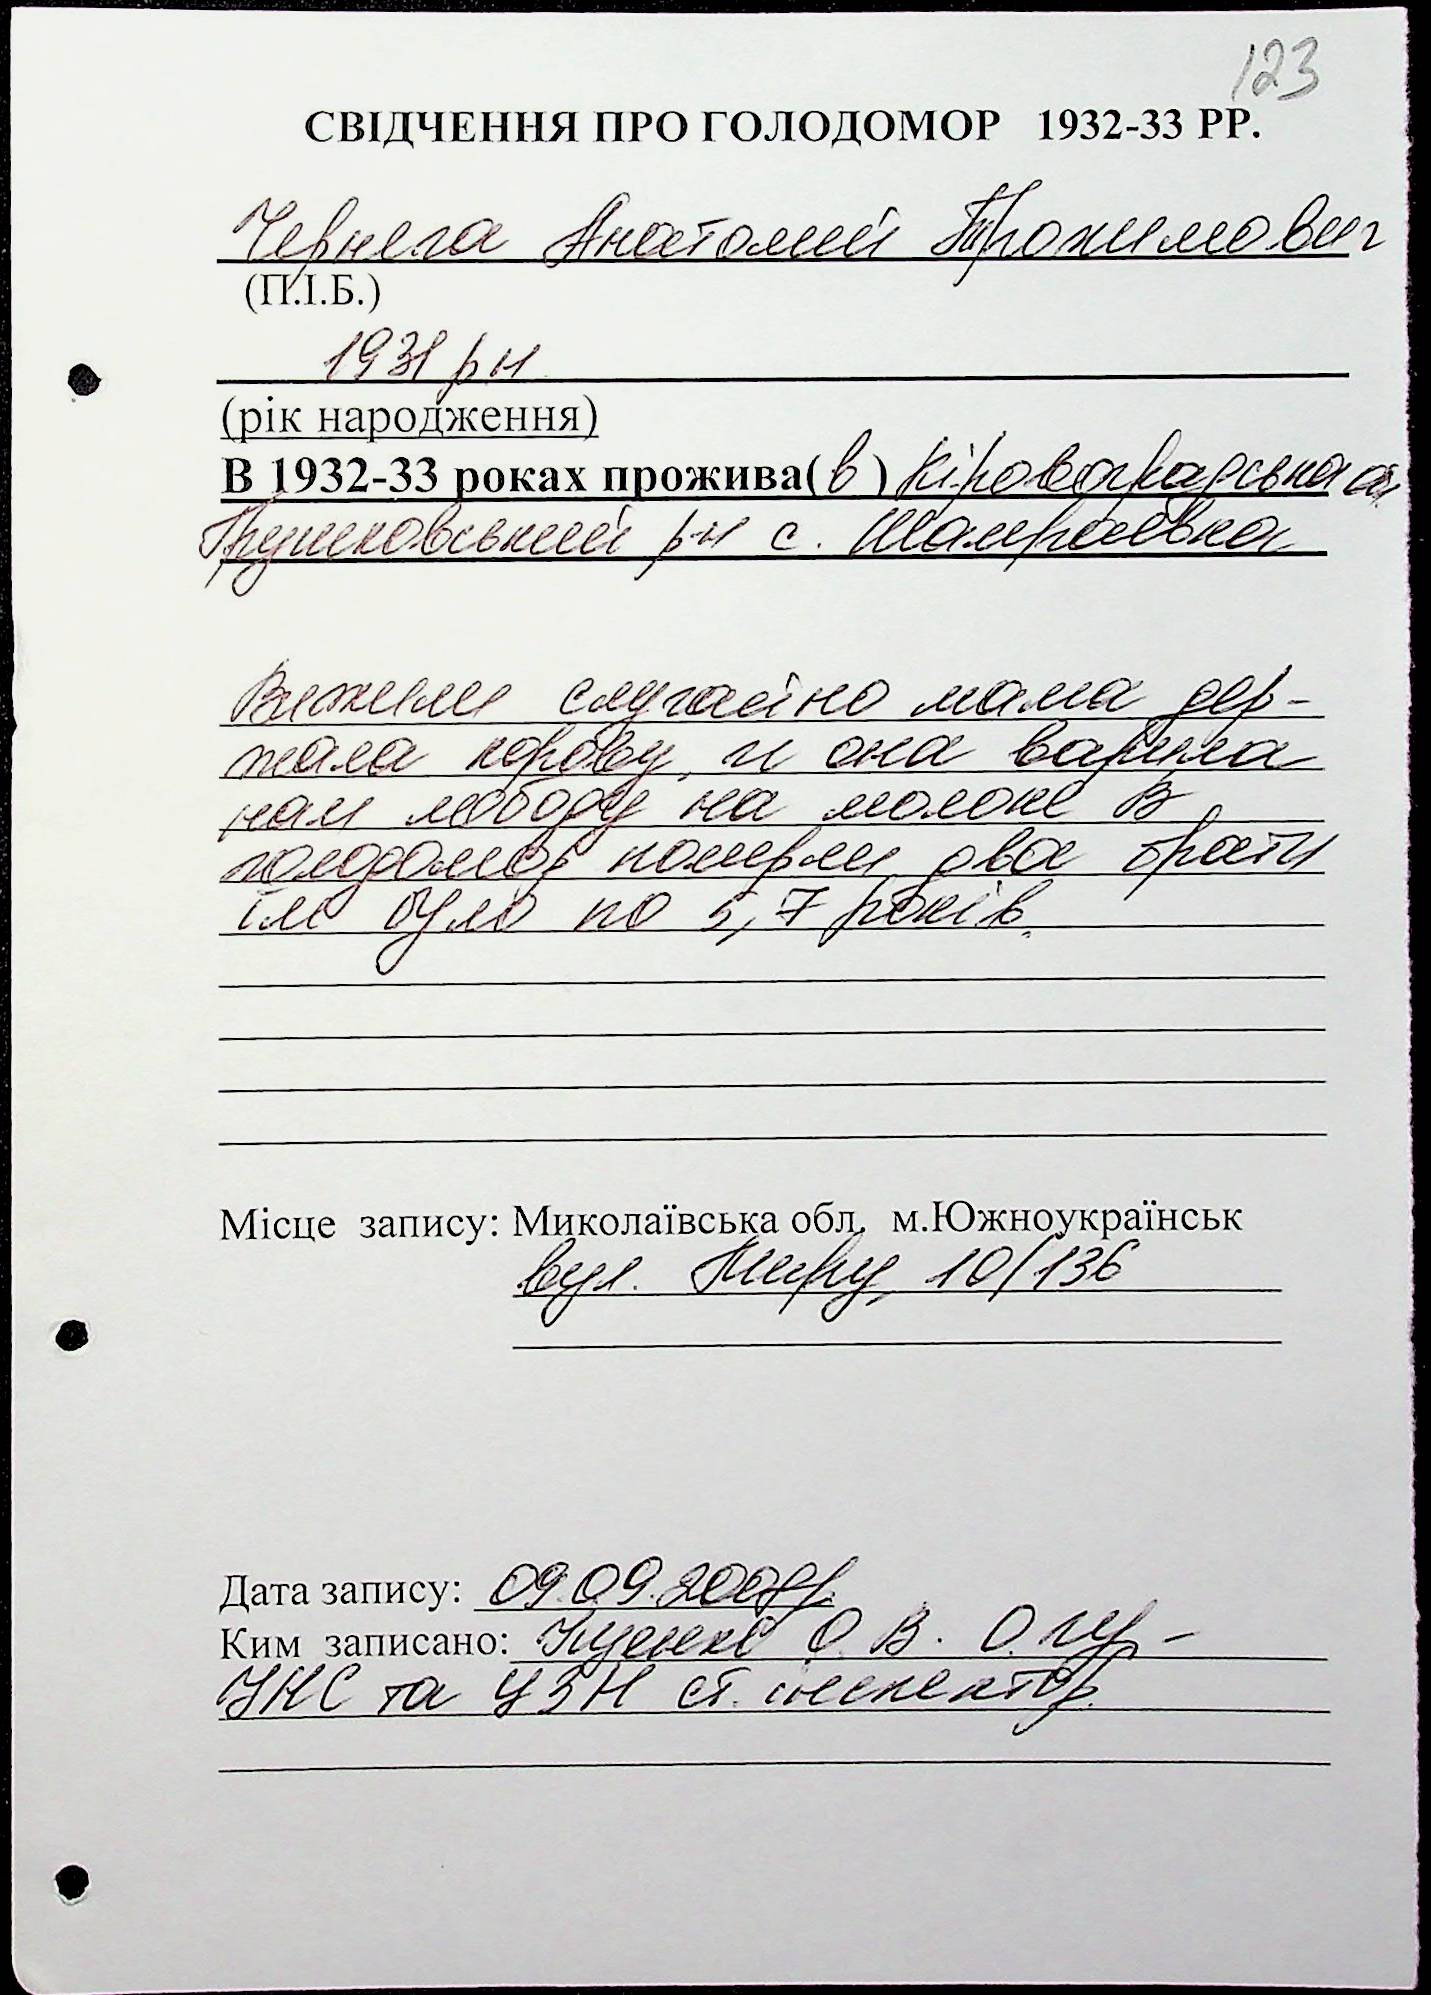 123
СВІДЧЕННЯ ПРО ГОЛОДОМОР 1932-33 РР.
Чернега Анатолий Трохимович
(П.І.Б.)
1931 рн
(рік народження)
В 1932-33 роках прожива(в) Кіровоградська
Грушковський р-н с. Шамраївка
Вижили случайно мама дер-
жала корову, и она варила
нам лободу на молоке В
голодомор померли два брати
їм було по 5,7 років.
Місце запису: Миколаївська обл. м.Южноукраїнськ
вул. Миру, 10/136
Дата запису: 09.09.2008р.
Ким записано: О. В.
УНС та ЦЗН ст. инспектор